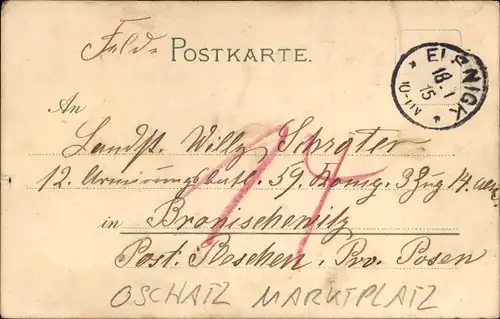 Feld= POSTKARTE.
ELSNIGK
18.1
15
10-11V
An
Landst. Willy Schröter
12. Armirungsbatl. 59. Komp. 3 Zug 14.
in Bronischewitz
Post. Pleschen. Prv. Posen
OSCHATZ MARKTPLATZ